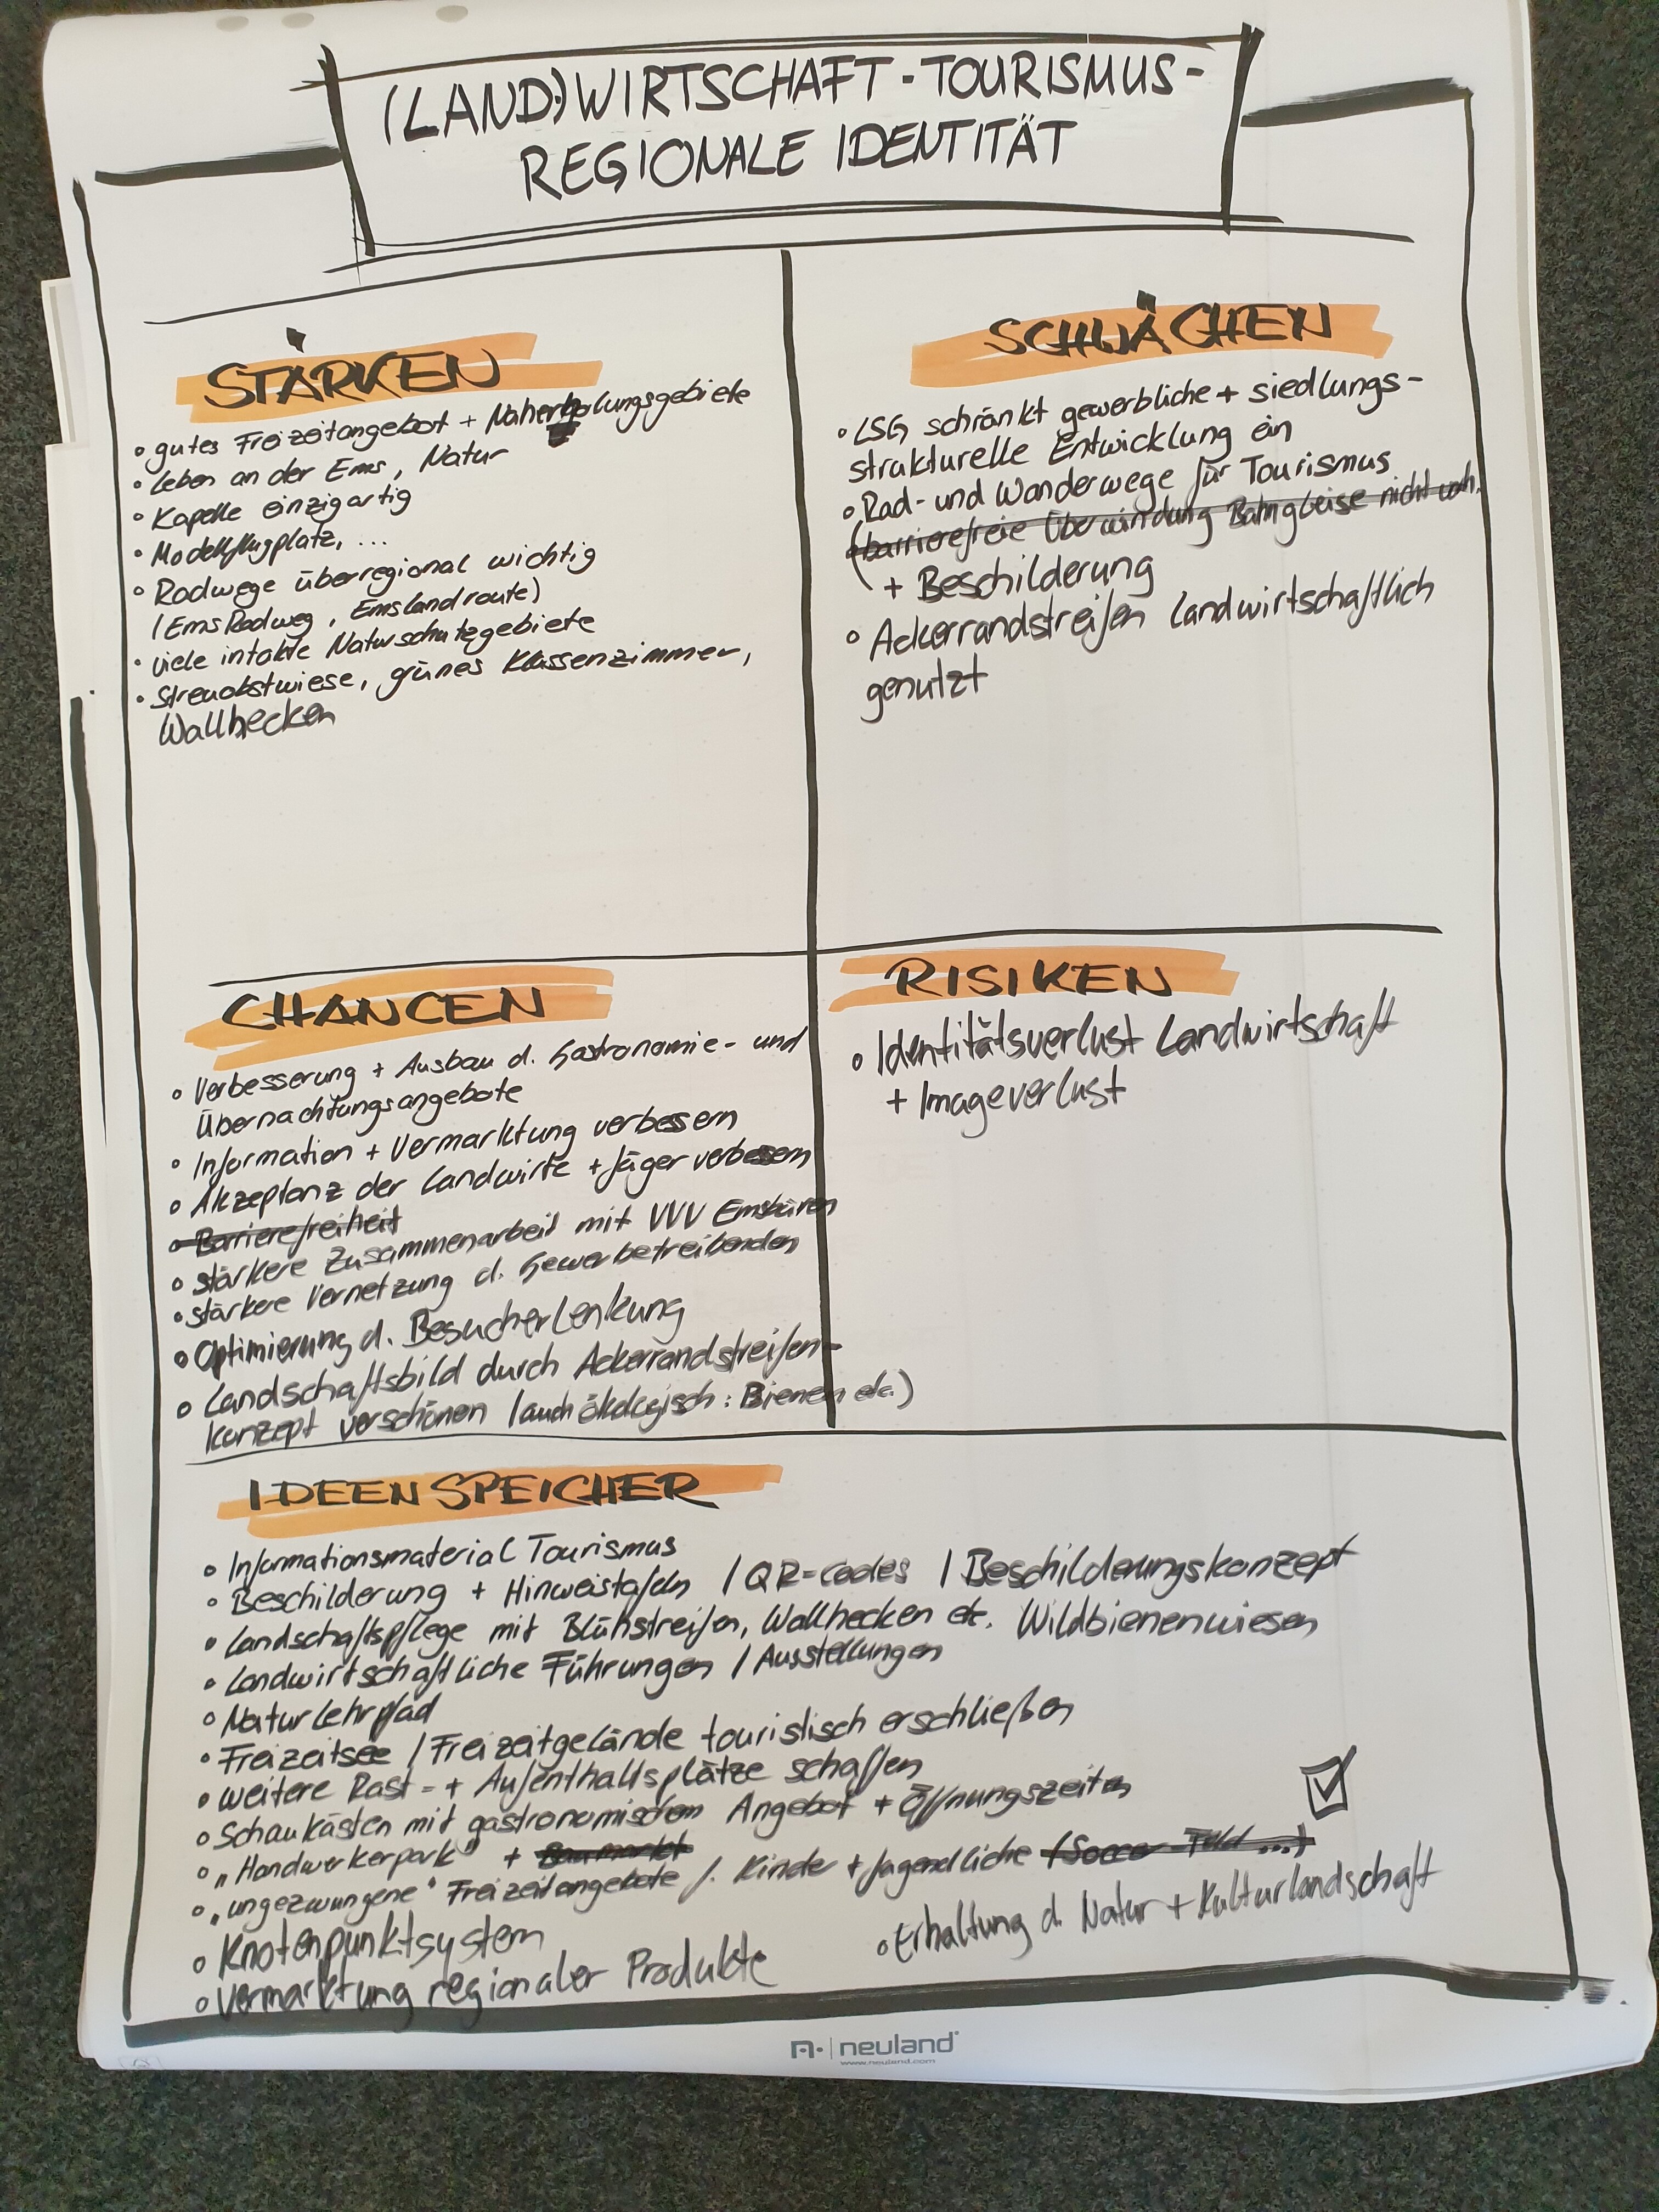 (LAND)WIRTSCHAFT - TOURISMUS -
REGIONALE IDENTITÄT
STÄRKEN
• gutes Freizeitangebot + Naherholungsgebiete
• Leben an der Ems, Natur
• Kapelle einzigartig
• Modellflugplatz, ...
• Radwege überregional wichtig
(EmsRadweg, Emslandroute)
• viele intakte Naturschutzgebiete
• Streuobstwiese, grünes Klassenzimmer,
Wallhecken
SCHWÄCHEN
• LSG schränkt gewerbliche + siedlungs-
strukturelle Entwicklung ein
• Rad- und Wanderwege für Tourismus
(barrierefreie Überwindung Bahngleise nicht vorh.
+ Beschilderung
• Ackerrandstreifen landwirtschaftlich
genutzt
CHANCEN
• Verbesserung + Ausbau d. Gastronomie- und
Übernachtungsangebote
• Information + Vermarktung verbessern
• Akzeptanz der Landwirte + Jäger verbessern
• Barrierefreiheit
• stärkere Zusammenarbeit mit VVV Emsbüren
• stärkere Vernetzung d. Gewerbetreibenden
• Optimierung d. Besucherlenkung
• Landschaftsbild durch Ackerrandstreifen-
konzept verschönen (auch ökologisch: Bienen etc.)
RISIKEN
• Identitätsverlust Landwirtschaft
+ Imageverlust
IDEENSPEICHER
• Informationsmaterial Tourismus
• Beschilderung + Hinweistafeln / QR-Codes / Beschilderungskonzept
• Landschaftspflege mit Blühstreifen, Wallhecken etc. Wildbienenwiesen
• Landwirtschaftliche Führungen / Ausstellungen
• Naturlehrpfad
• Freizeitsee / Freizeitgelände touristisch erschließen
• weitere Rast- + Aufenthaltsplätze schaffen
• Schaukästen mit gastronomischem Angebot + Öffnungszeiten
• „Handwerkerpark" + Baumarkt
• „ungezwungene" Freizeitangebote f. Kinder + Jugendliche (Soccer-Feld ...)
• Knotenpunktsystem
• Erhaltung d. Natur + Kulturlandschaft
• Vermarktung regionaler Produkte
neuland
www.neuland.com